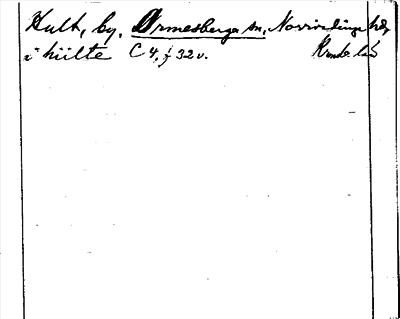 Hult, by, Ormesberga sn, Norrvidinge hd,
i hülte C 4, f 32 v. Kronob. län